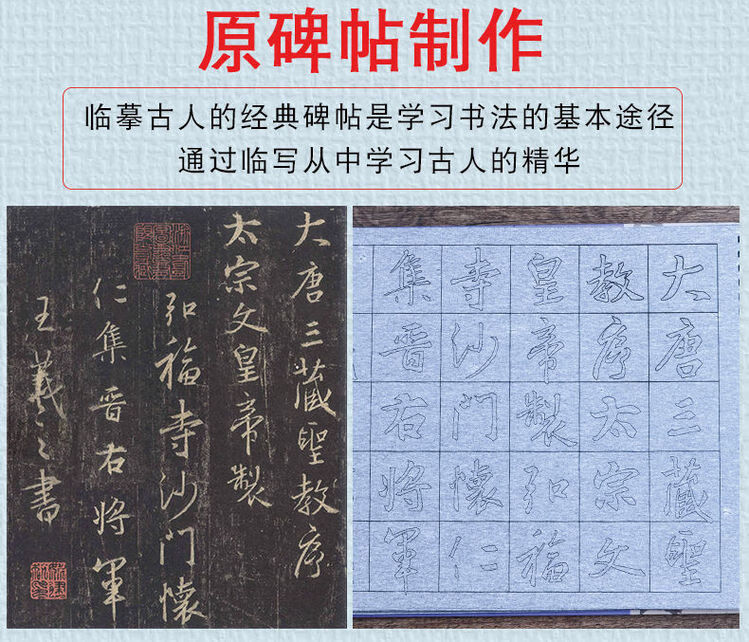 原碑帖制作
临摹古人的经典碑帖是学习书法的基本途径
通过临写从中学习古人的精华
大唐三藏聖教序
太宗文皇帝製
弘福寺沙門懷
仁集晉右將軍
王羲之書
大唐三藏聖
教序太宗文
皇帝製弘福
寺沙門懷仁
集晉右將軍